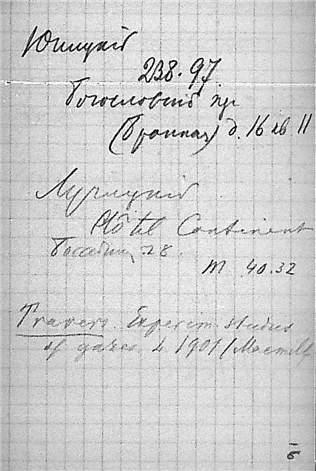 Юницкій
238·97
Богословскій пр
(Бронная) д. 16 кв 11
Лучицкій
Hôtel Continent
28.
т. 40.32
Travers. Experim studies
of gases. L 1901 / Macmill